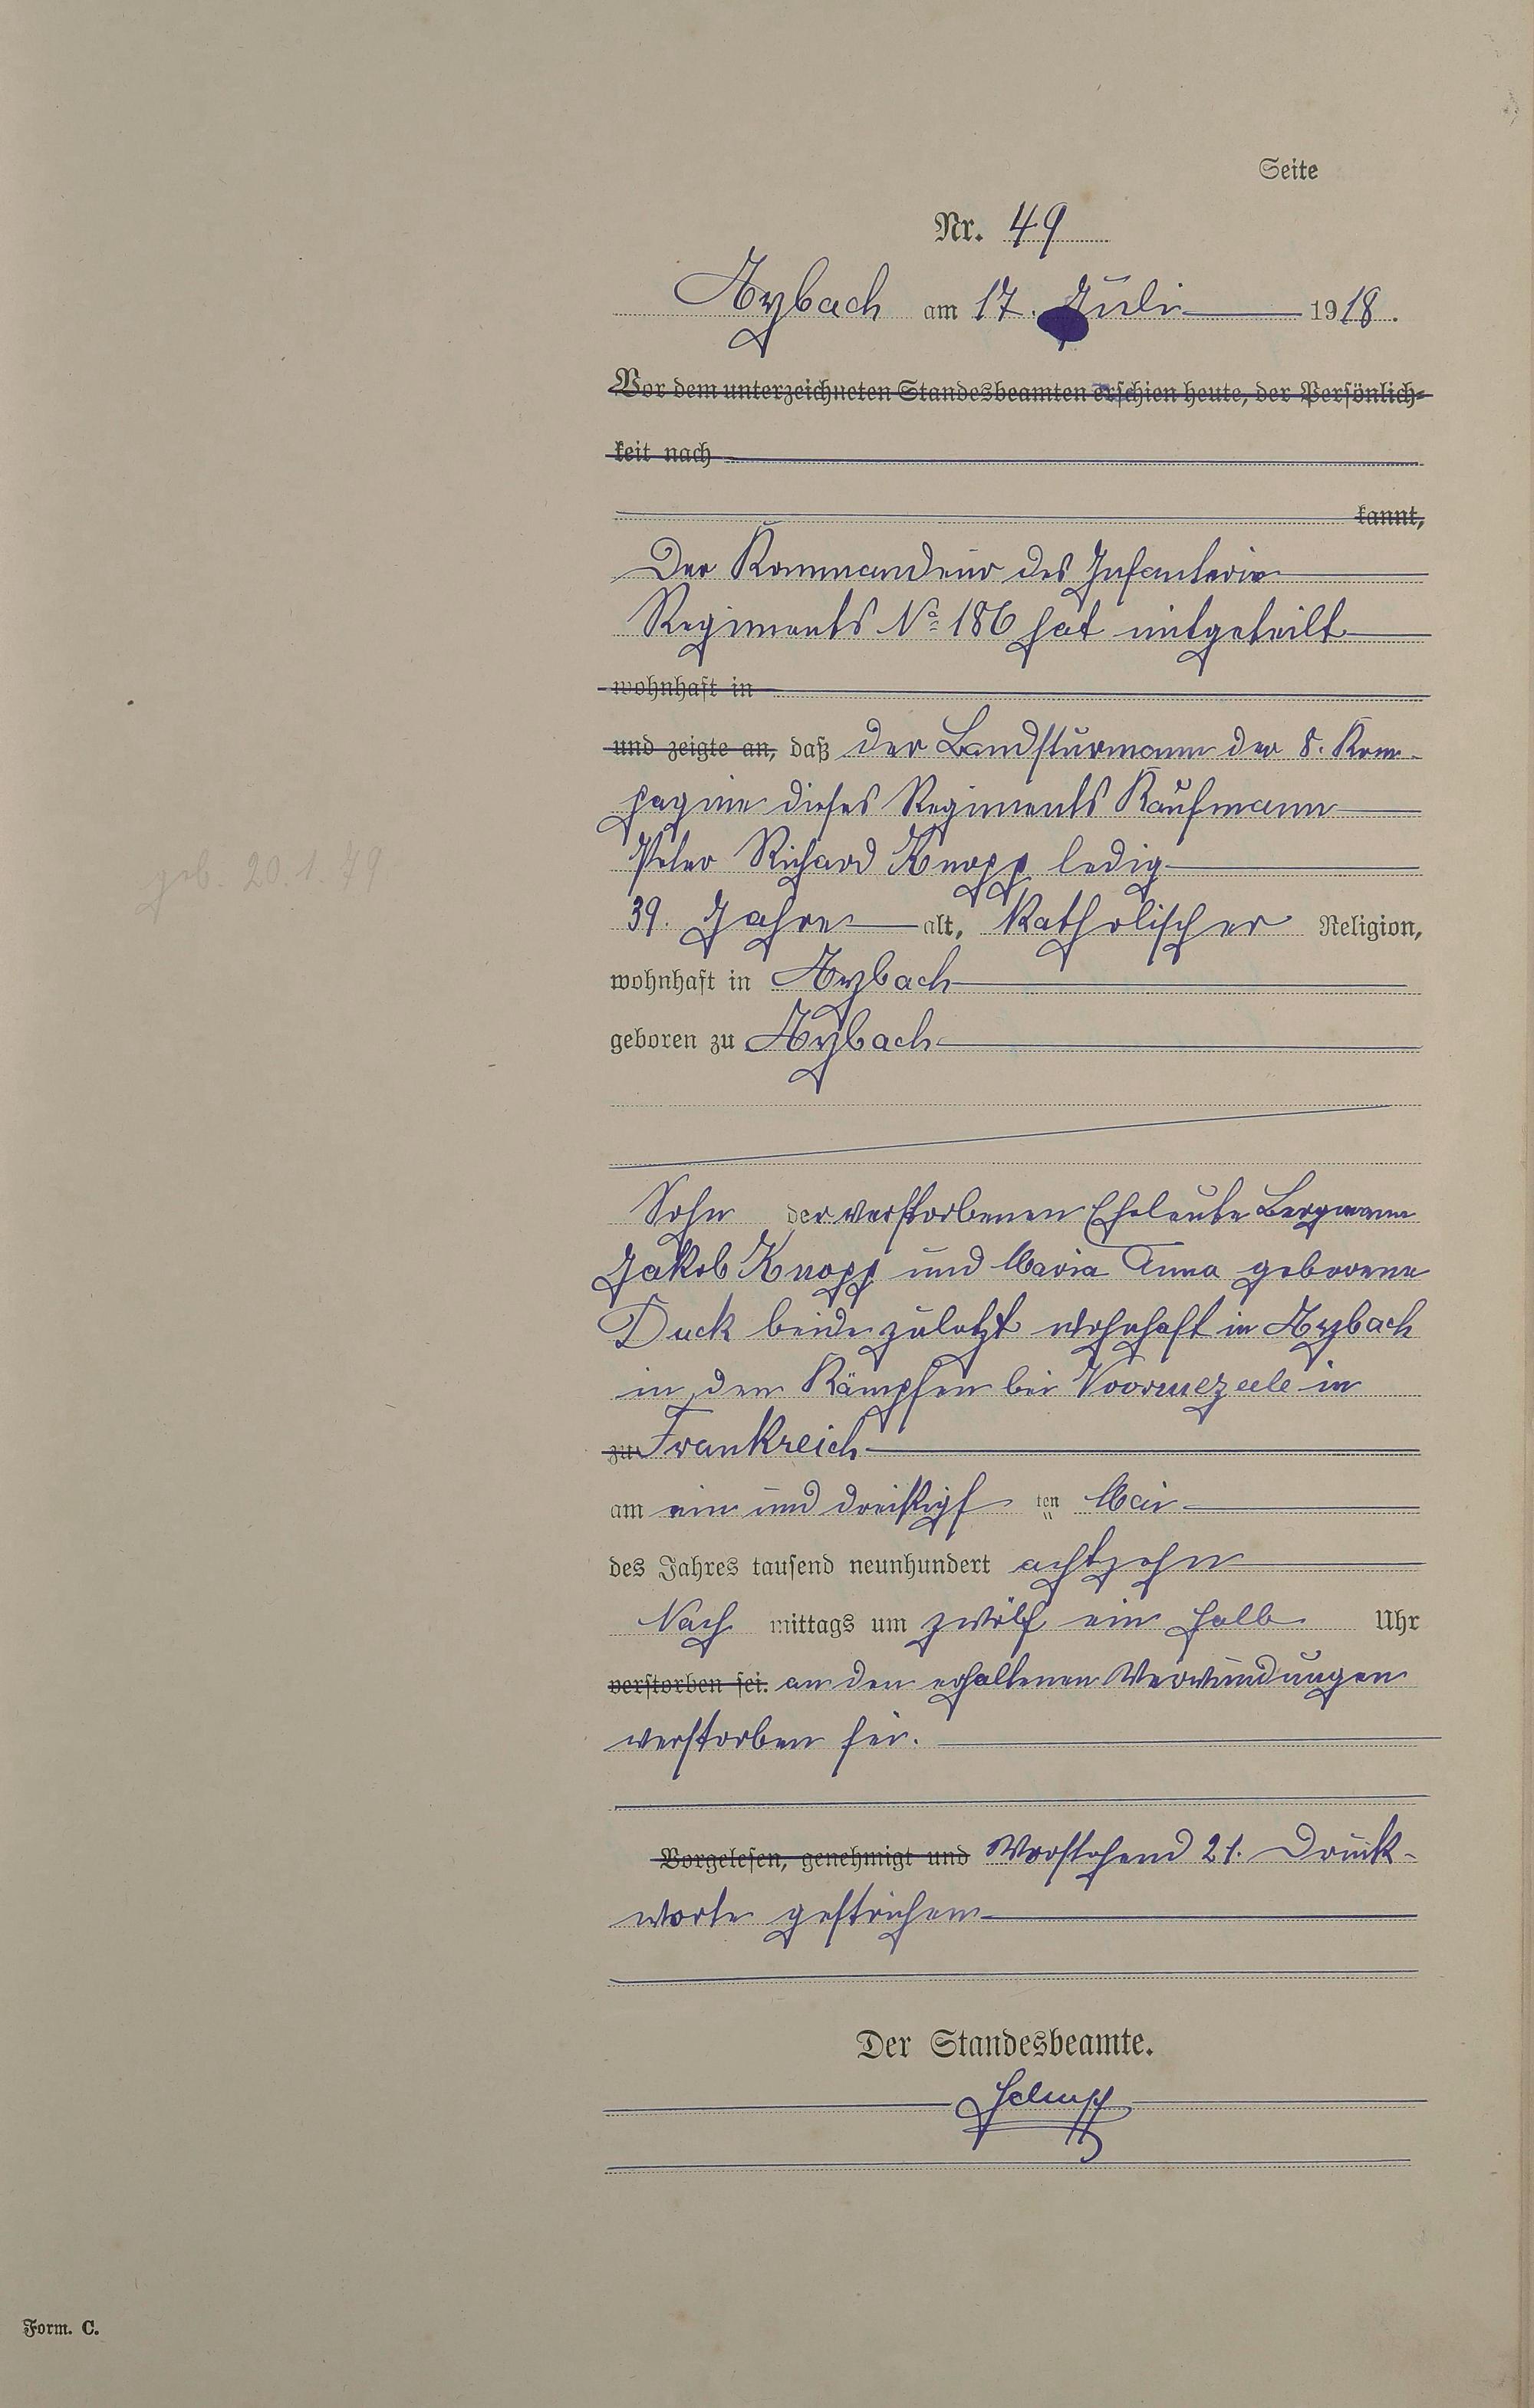 Seite
Nr. 49
Aybach am 17. Juli 1918.
Vor dem unterzeichneten Standesbeamten erschien heute, der Persönlich-
keit nach
kannt,
Der Kommandeur des Infanterie
Regiments No 186 hat mitgeteilt
wohnhaft in
und zeigte an, daß der Landsturmann der 8. Kom-
pagnie dieses Regiments Kaufmann
Peter Richard Knopp ledig
geb. 20.1.79
39. Jahre alt, katholischer Religion,
wohnhaft in Aybach
geboren zu Aybach
Sohn der verstorbenen Eheleute Bergmann
Jakob Knopp und Maria Anna geborene
Duck beide zuletzt wohnhaft in Aybach
in den Kämpfen bei Voormezeele in
zu Frankreich
am ein und dreißigsten Mai
des Jahres tausend neunhundert achtzehn
Nach mittags um zwölf ein halb Uhr
verstorben sei. an den erhaltenen Verwundungen
verstorben sei.
Vorgelesen, genehmigt und Vorstehend 21. Druck-
worte gestrichen
Der Standesbeamte.
Form. C.